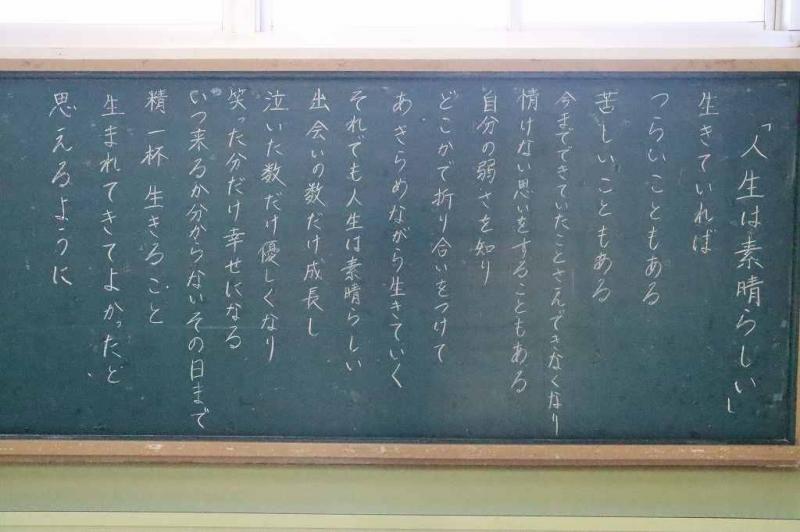 「人生は素晴らしい」
生きていれば
つらいこともある
苦しいこともある
今までできていたことさえできなくなり
情けない思いをすることもある
自分の弱さを知り
どこかで折り合いをつけて
あきらめながら生きていく
それでも人生は素晴らしい
出会いの数だけ成長し
泣いた数だけ優しくなり
笑った分だけ幸せになる
いつ来るか分からないその日まで
精一杯 生きること
生まれてきてよかったと
思えるように